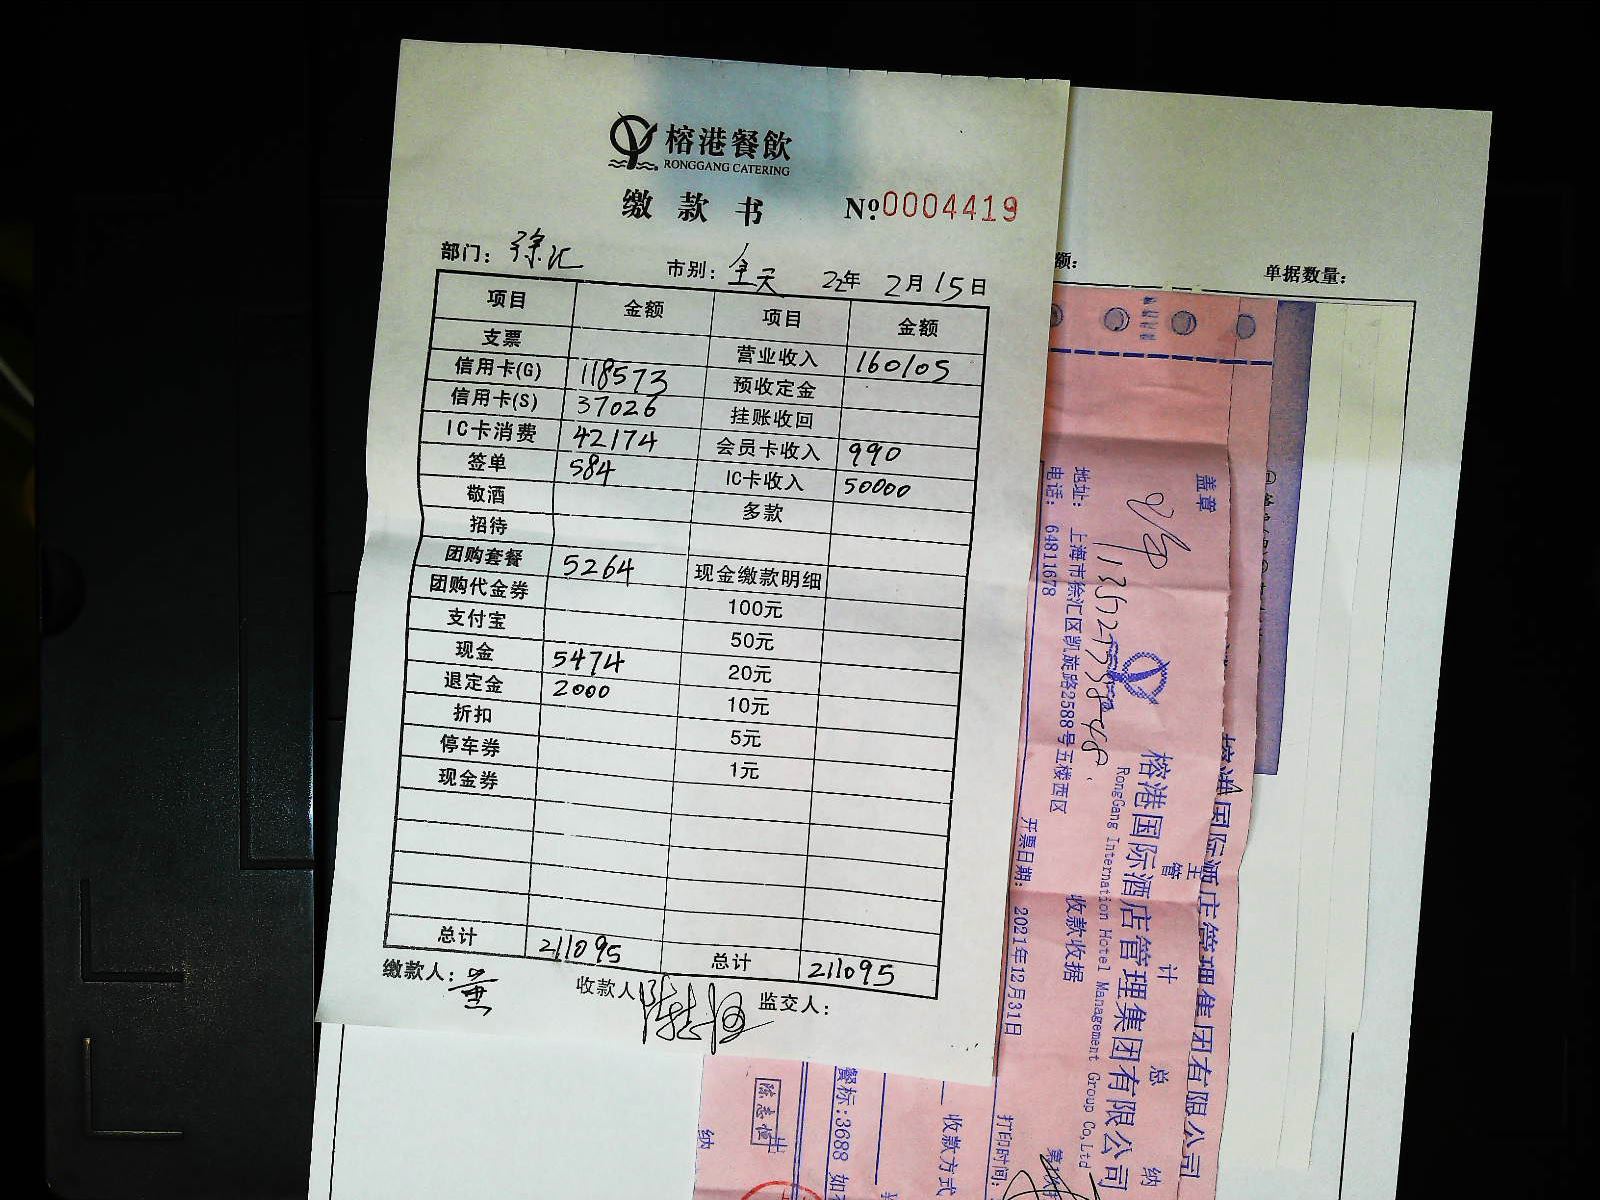 榕港餐飲
RONGGANG CATERING
缴款书 №0004419
部门: 徐汇 市别: 全天 22年 2月15日
项目 金额 项目 金额
支票 营业收入 160105
信用卡(G) 118573 预收定金
信用卡(S) 37026 挂账收回
IC卡消费 42174 会员卡收入 990
签单 584 IC卡收入 50000
敬酒 多款
招待
团购套餐 5264 现金缴款明细
团购代金券 100元
支付宝 50元
现金 5474 20元
退定金 2000 10元
折扣 5元
停车券 1元
现金券
总计 211095 总计 211095
缴款人: 收款人 监交人:
额: 单据数量:
盖章
地址: 上海市徐汇区凯旋路2588号五楼西区
电话: 64811678
榕港国际酒店管理集团有限公司
RongGang Internation Hotel Management Group Co,Ltd
收款收据
开票日期: 2021年12月31日
打印时间:
收款方式
餐标:3688
陈志恒
纳
榕港国际酒店管理集团有限公司
主管
计
总
纳